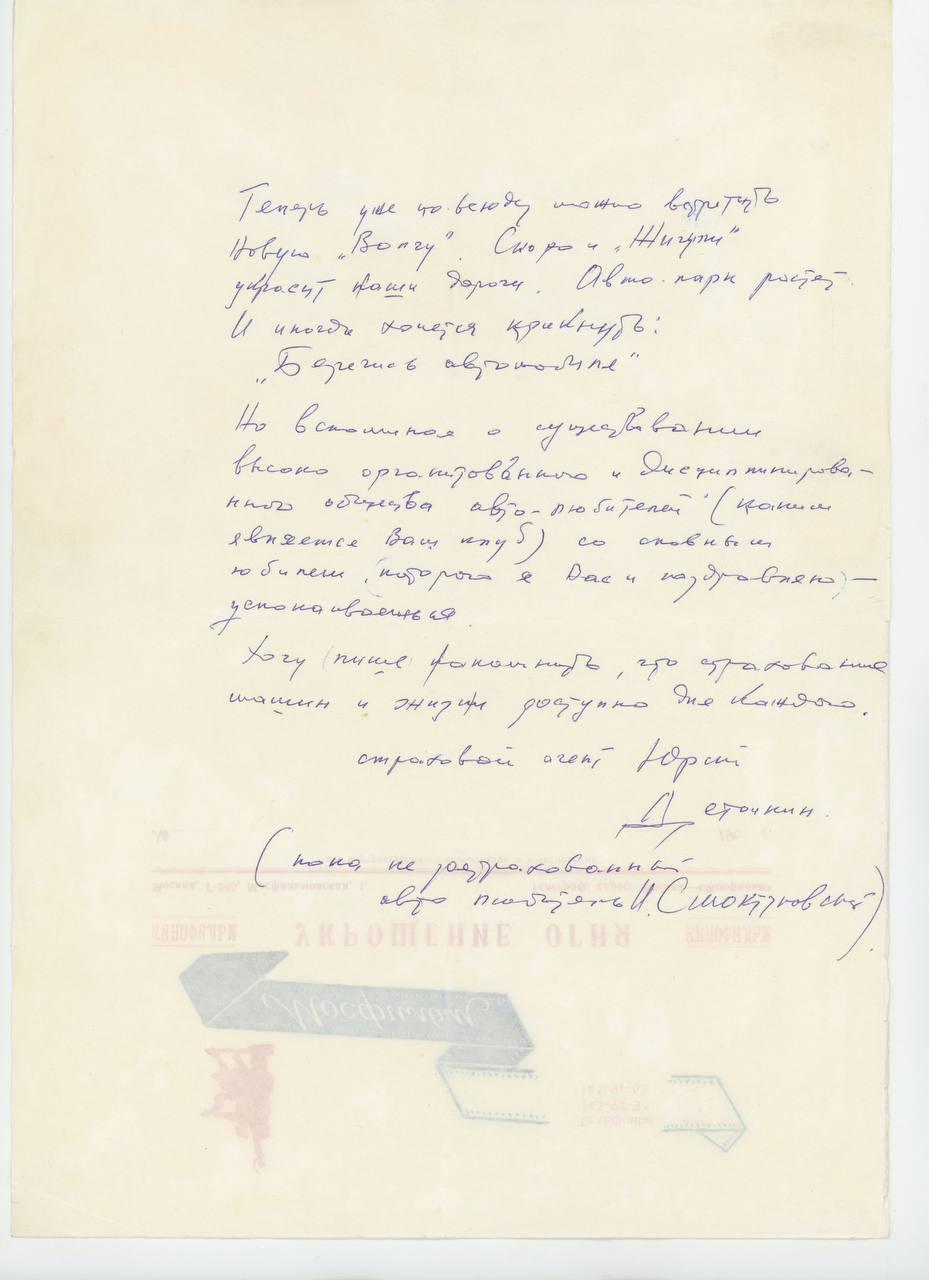 Теперь уже повсюду можно встретить
новую „Волгу“. Скоро и „Жигули“
украсят наши дороги. Авто-парк растет.
И иногда хочется крикнуть:
„Берегись автомобиля“
Но вспоминая о существовании
высоко организованного и дисциплинирова-
нного общества авто-любителей (каким
является Ваш клуб) со славным
юбилеем (которого я Вас и поздравляю) —
успокаиваешься.
Хочу (лишь) напомнить, что страхование
машин и жизни доступно для каждого.
страховой агент Юрий
Деточкин.
(пока не застрахованный
авто любитель И. Смоктуновский).
№
196 г.
Москва, Г-285, Мосфильмовская, 1.
КИНОФИЛЬМ УКРОЩЕНИЕ ОГНЯ КИНОФИЛЬМ
Мосфильм
Телефоны: